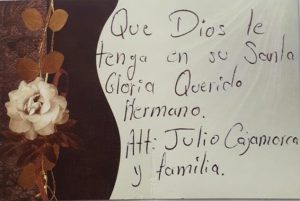 Que Dios le
tenga en su Santa
Gloria Querido
Hermano.
Att: Julio Cajamarca
y familia.